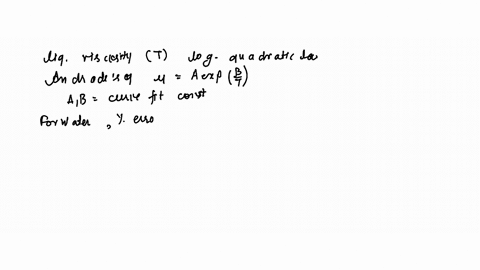 Liq. viscosity (T) log-quadratic law
Andrade's eq μ = A exp (B/T)
A,B = curve fit const
For water, % erro